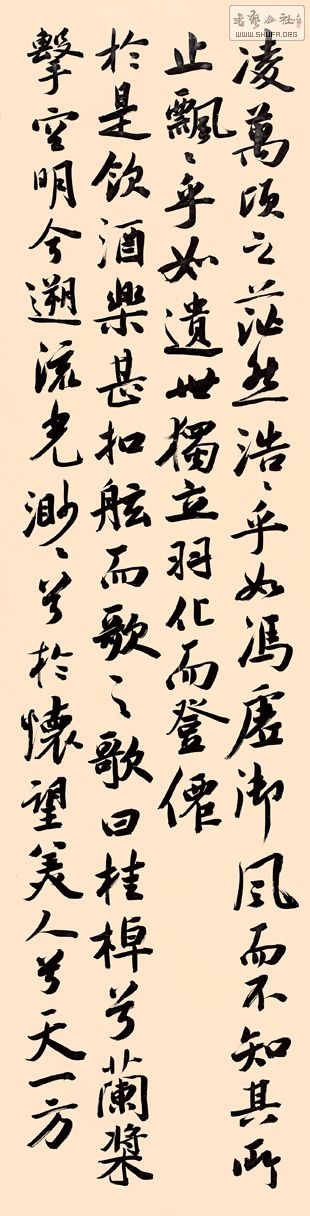 凌萬頃之茫然浩〻乎如馮虛御風而不知其所
止飄〻乎如遺世獨立羽化而登僊
於是飲酒樂甚扣舷而歌之歌曰桂棹兮蘭槳
擊空明兮遡流光渺〻兮於懷望美人兮天一方
WWW.SHUFA.ORG